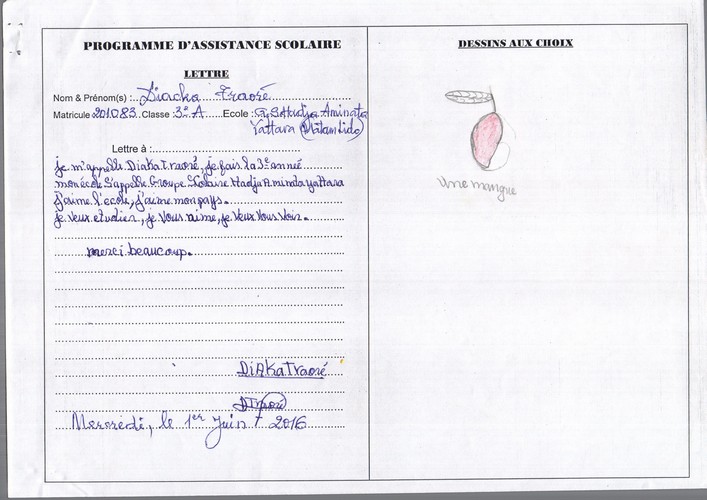 PROGRAMME D'ASSISTANCE SCOLAIRE
LETTRE
Nom & Prénom(s) : Diacka Traoré
Matricule 201083 Classe : 3e A Ecole : G.S Hadja Aminata
Yattara (Matam Lido)
Lettre à :
je m'appelle Diaka Traoré, je fais la 3e année
mon école s'appelle Groupe Scolaire Hadja Aminata yattara
j'aime l'école, j'aime mon pays.
je veux etudier, je vous aime, je veux vous voir.
merci beaucoup.
DiAKa Traoré
DTraoré
Mercredi, le 1er Juin 2016
DESSINS AUX CHOIX
une mangue